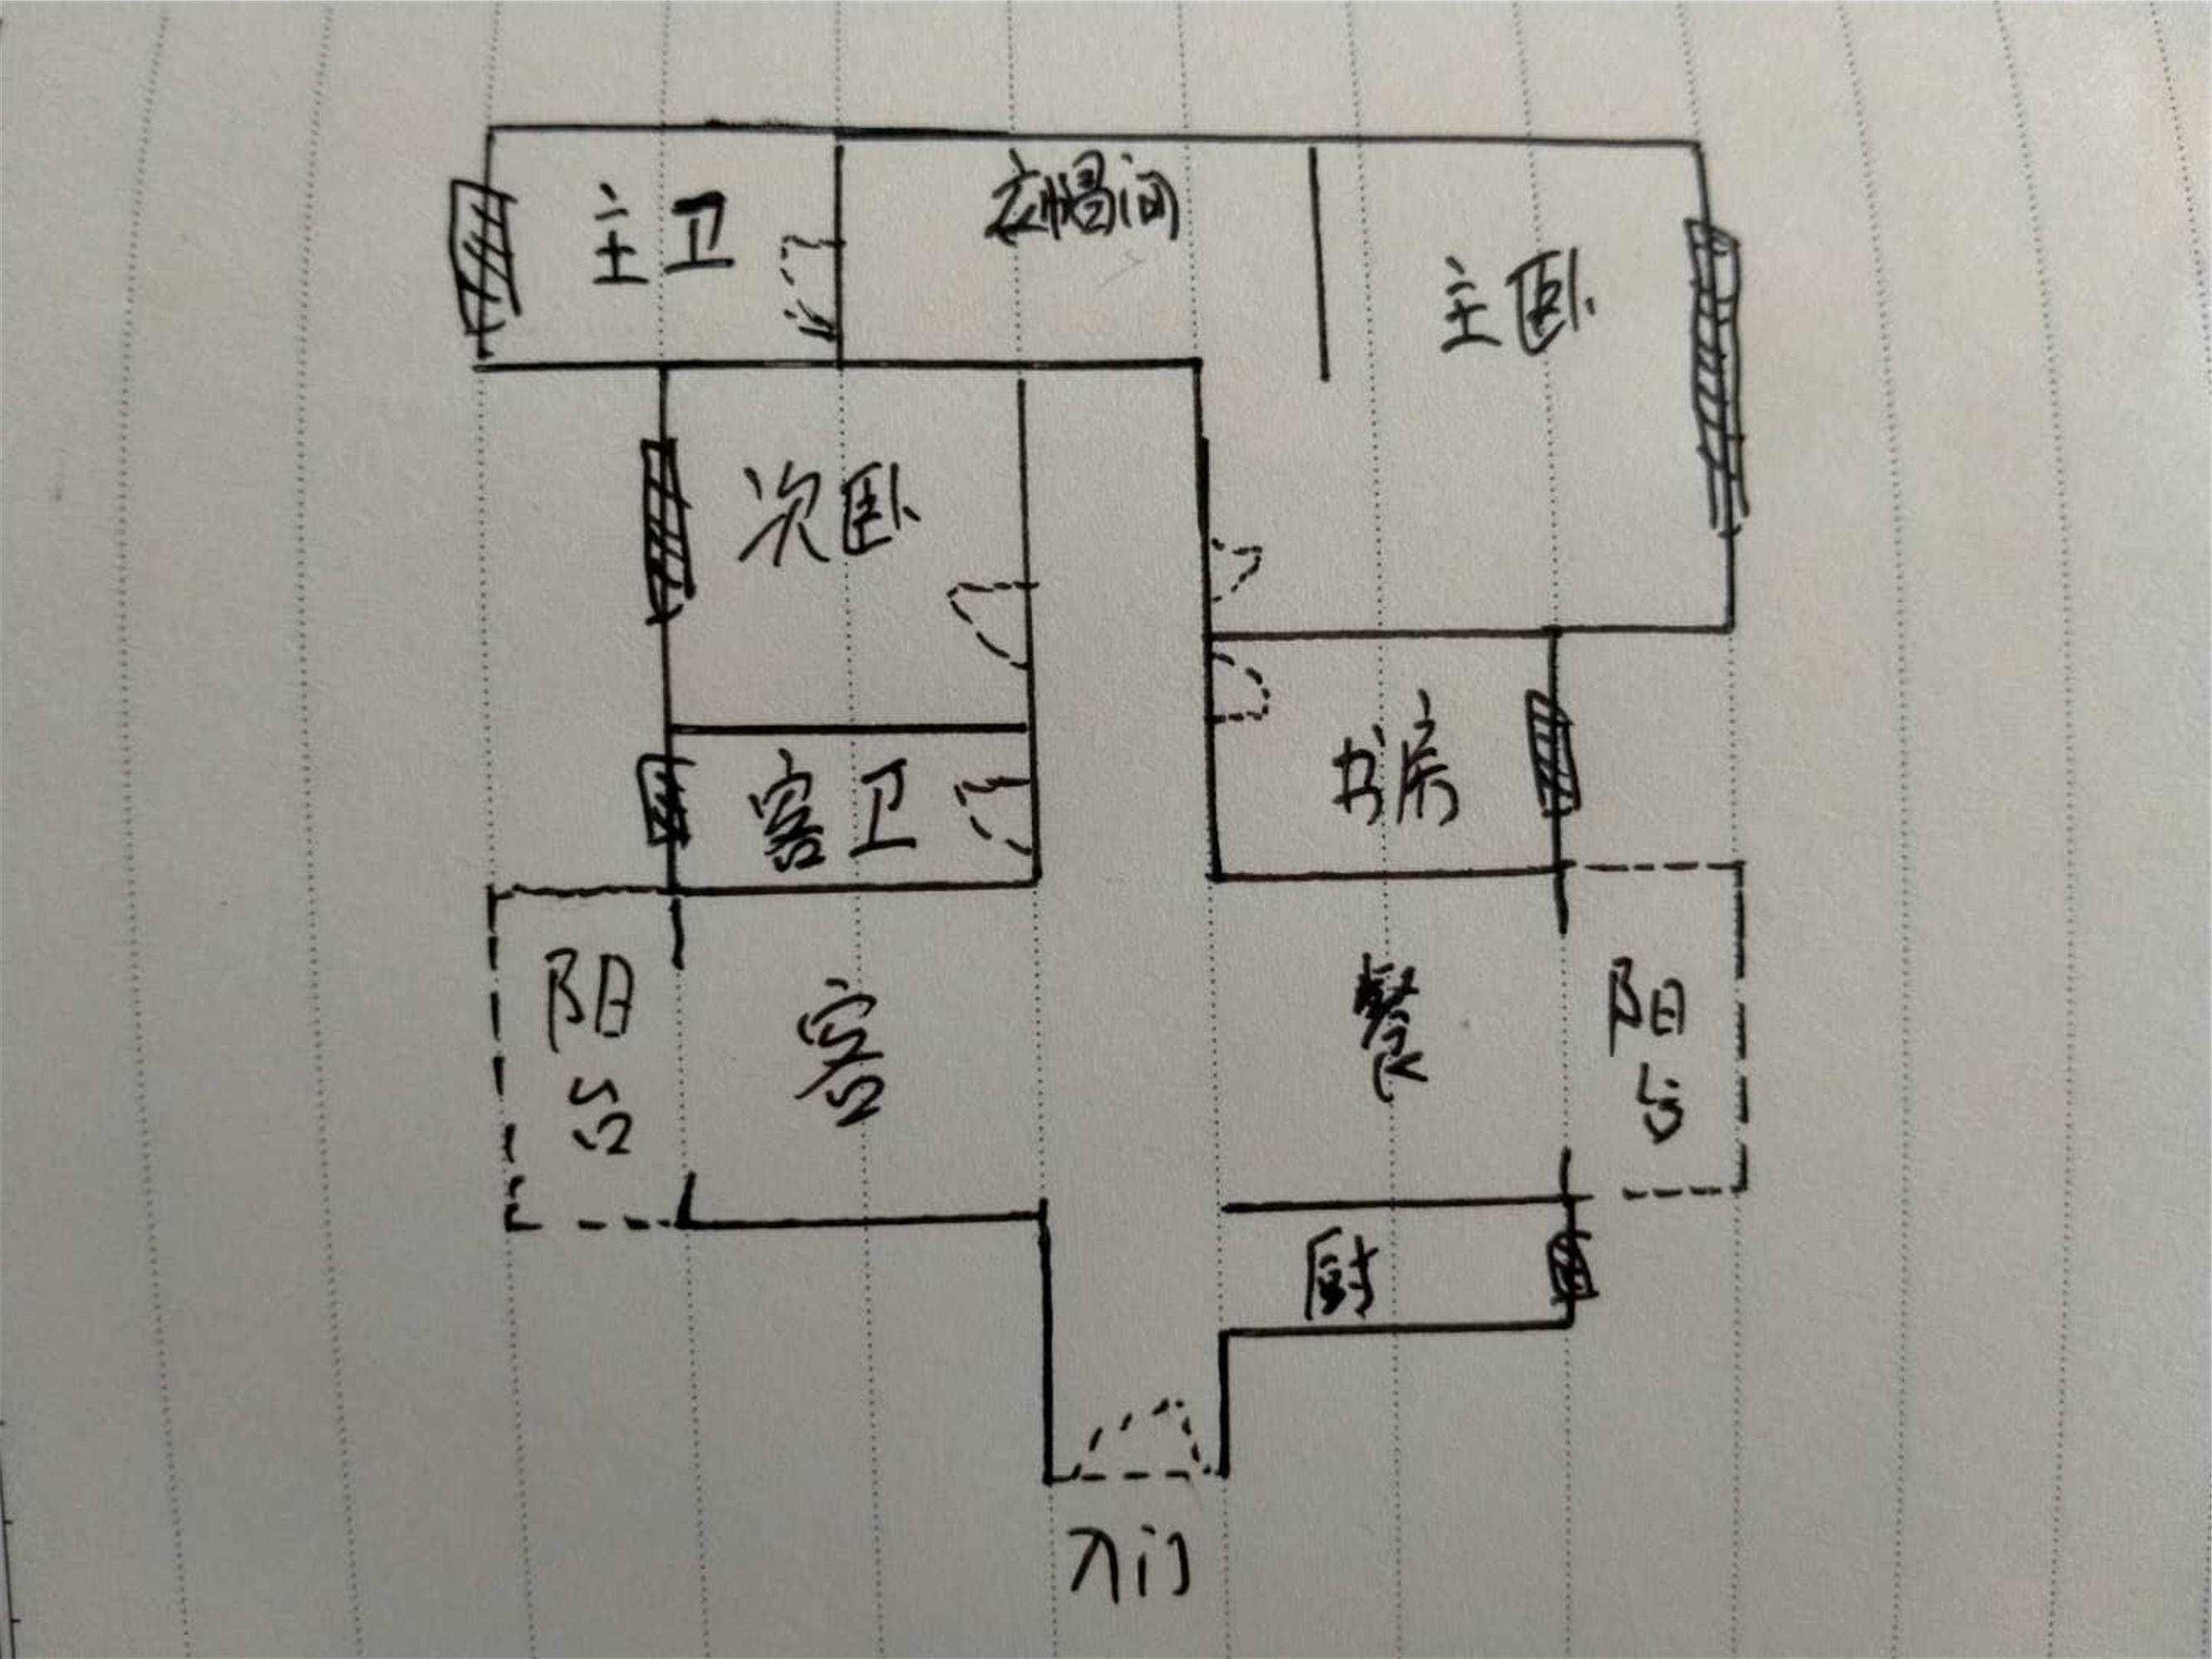 主卫
衣帽间
主卧
次卧
客卫
书房
阳台
客
餐
阳台
厨
入门